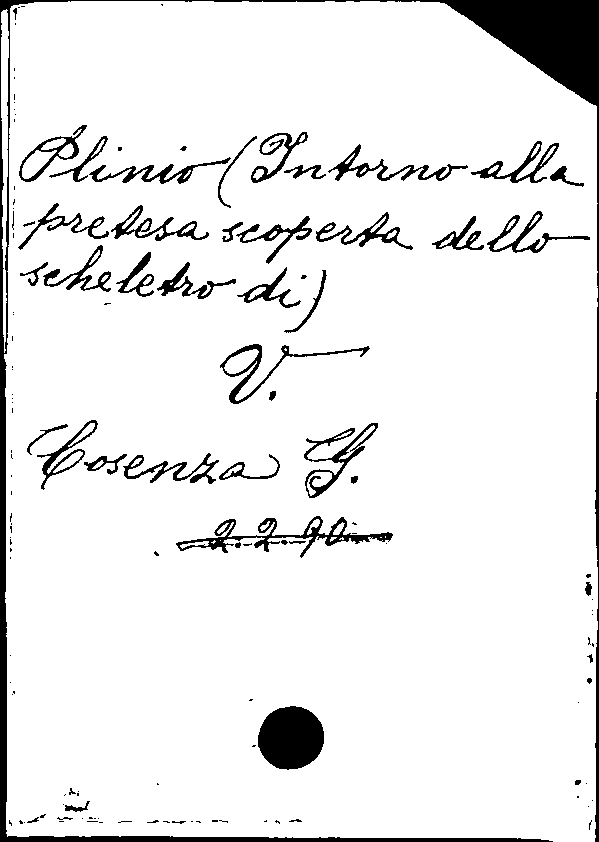 Plinio (Intorno alla
pretesa scoperta dello
scheletro di)
V.
Cosenza G.
2.2.90